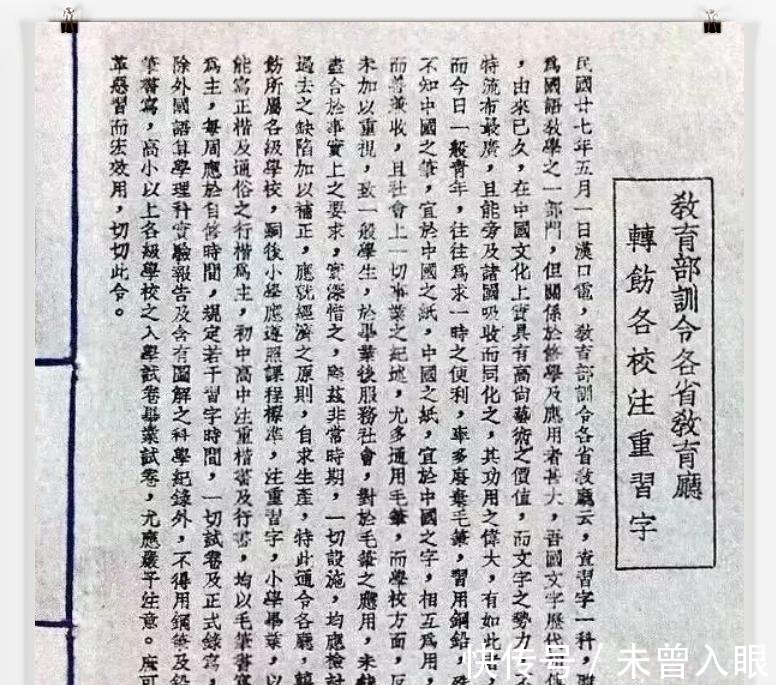 教育部訓令各省教育廳
轉飭各校注重習字
民國廿七年五月一日漢口電，教育部訓令各省教廳云，查習字一科，雖
爲國語教學之一部門，但關係於修學及應用者甚大，吾國文字歷代
，由來已久，在中國文化上實具有高尚藝術之價值，而文字之勢力，不
特流布最廣，且能旁及諸國吸收而同化之，其功用之偉大，有如此
而今日一般青年，往往爲求一時之便利，率多廢棄毛筆，習用鋼鉛，殊
不知中國之筆，宜於中國之紙，中國之紙，宜於中國之字，相互爲用，
而善兼收，且社會上一切事業之紀述，尤多通用毛筆，而學校方面，反
未加以重視，致一般學生，於畢業後服務社會，對於毛筆之應用，未能
盡合於事實上之要求，實深惜之，際茲非常時期，一切設施，均應檢討
過去之缺陷加以補正，應就經濟之原則，自求生產，特此通令各廳，轉
飭所屬各級學校，嗣後小學應遵照課程標準，注重習字，小學畢業，以
能寫正楷及通俗之行楷爲主，初中高中注重楷書及行書，均以毛筆書寫
爲主，每周應於自修時間，規定若干習字時間，一切試卷及正式錄寫，
除外國語算學理科實驗報告及含有圖解之科學紀錄外，不得用鋼筆及鉛
筆書寫，高小以上各級學校之入學試卷畢業試卷，尤應嚴予注意。庶可
革惡習而宏效用，切切此令。
快传号 / 未曾入眼